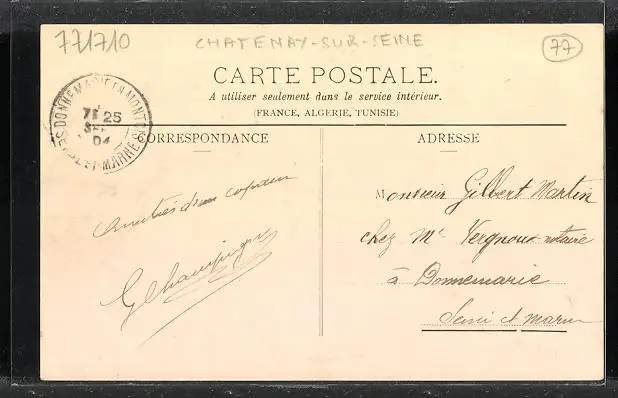 771710
CHATENAY-SUR-SEINE
77
CARTE POSTALE.
A utiliser seulement dans le service intérieur.
(FRANCE, ALGERIE, TUNISIE)
DONNEMARIE EN MONTOIS
7E 25
SEPT
04
SEINE-ET-MARNE
CORRESPONDANCE
ADRESSE
Amitiés d'un copain
Monsieur Gilbert Martin
chez Me Vergnoux notaire
à Donnemarie
Seine et Marne